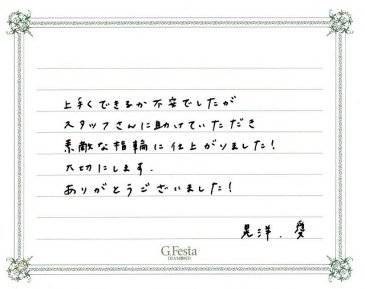 上手くできるか不安でしたが
スタッフさんに助けていただき
素敵な指輪に仕上がりました!
大切にします.
ありがとうございました!
晃洋、愛
G.Festa
DIAMOND